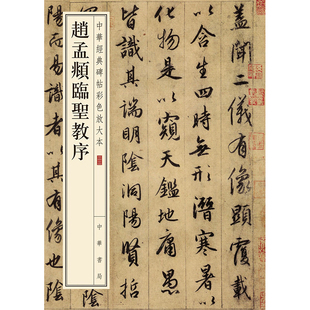 蓋聞二儀有像顯覆載
以含生四時無形潛寒暑以
化物是以窺天鑑地庸愚
皆識其端明陰洞陽賢哲
中華經典碑帖彩色放大本
趙孟頫臨聖教序
中華書局
而易識者以其有像也陰